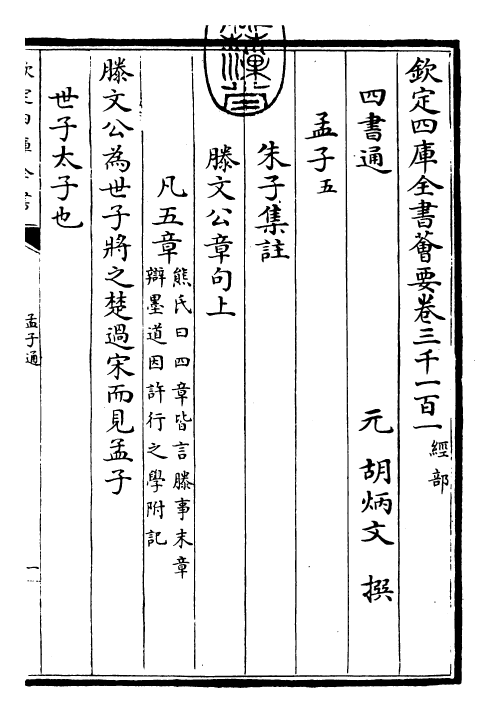 欽定四庫全書薈要卷三千一百一 經部
四書通 元 胡炳文 撰
孟子五
朱子集註
滕文公章句上
凡五章 熊氏曰四章皆言滕事末章
辯墨道因許行之學附記
滕文公為世子將之楚過宋而見孟子
世子太子也
孟子通
一